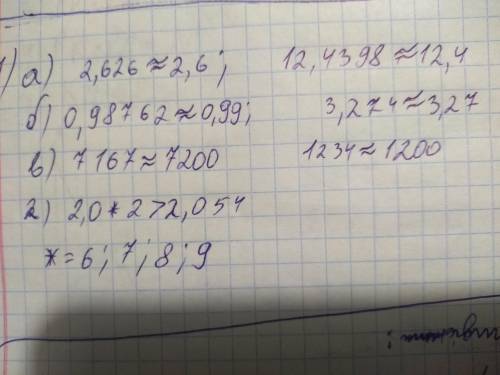 1) а) 2,626≈2,6; 12,4398≈12,4
б) 0,98762≈0,99; 3,274≈3,27
в) 7167≈7200 1234≈1200
2) 2,0*2>2,054
*=6; 7; 8; 9